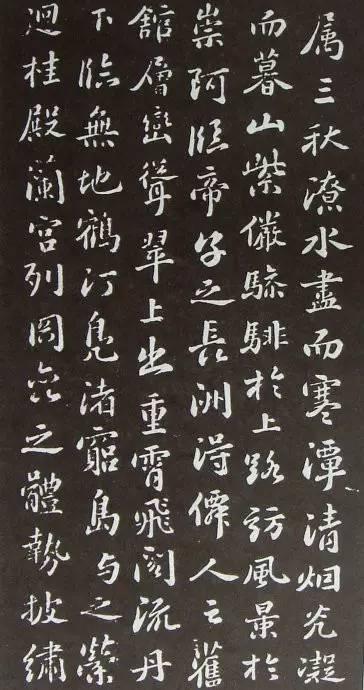 属三秋潦水盡而寒潭清烟光凝
而暮山紫儼驂騑於上路訪風景於
崇阿臨帝子之長洲得僊人之舊
館層巒聳翠上出重霄飛閣流丹
下臨無地鶴汀鳧渚窮島与之縈
迴桂殿蘭宮列岡巒之體勢披繡